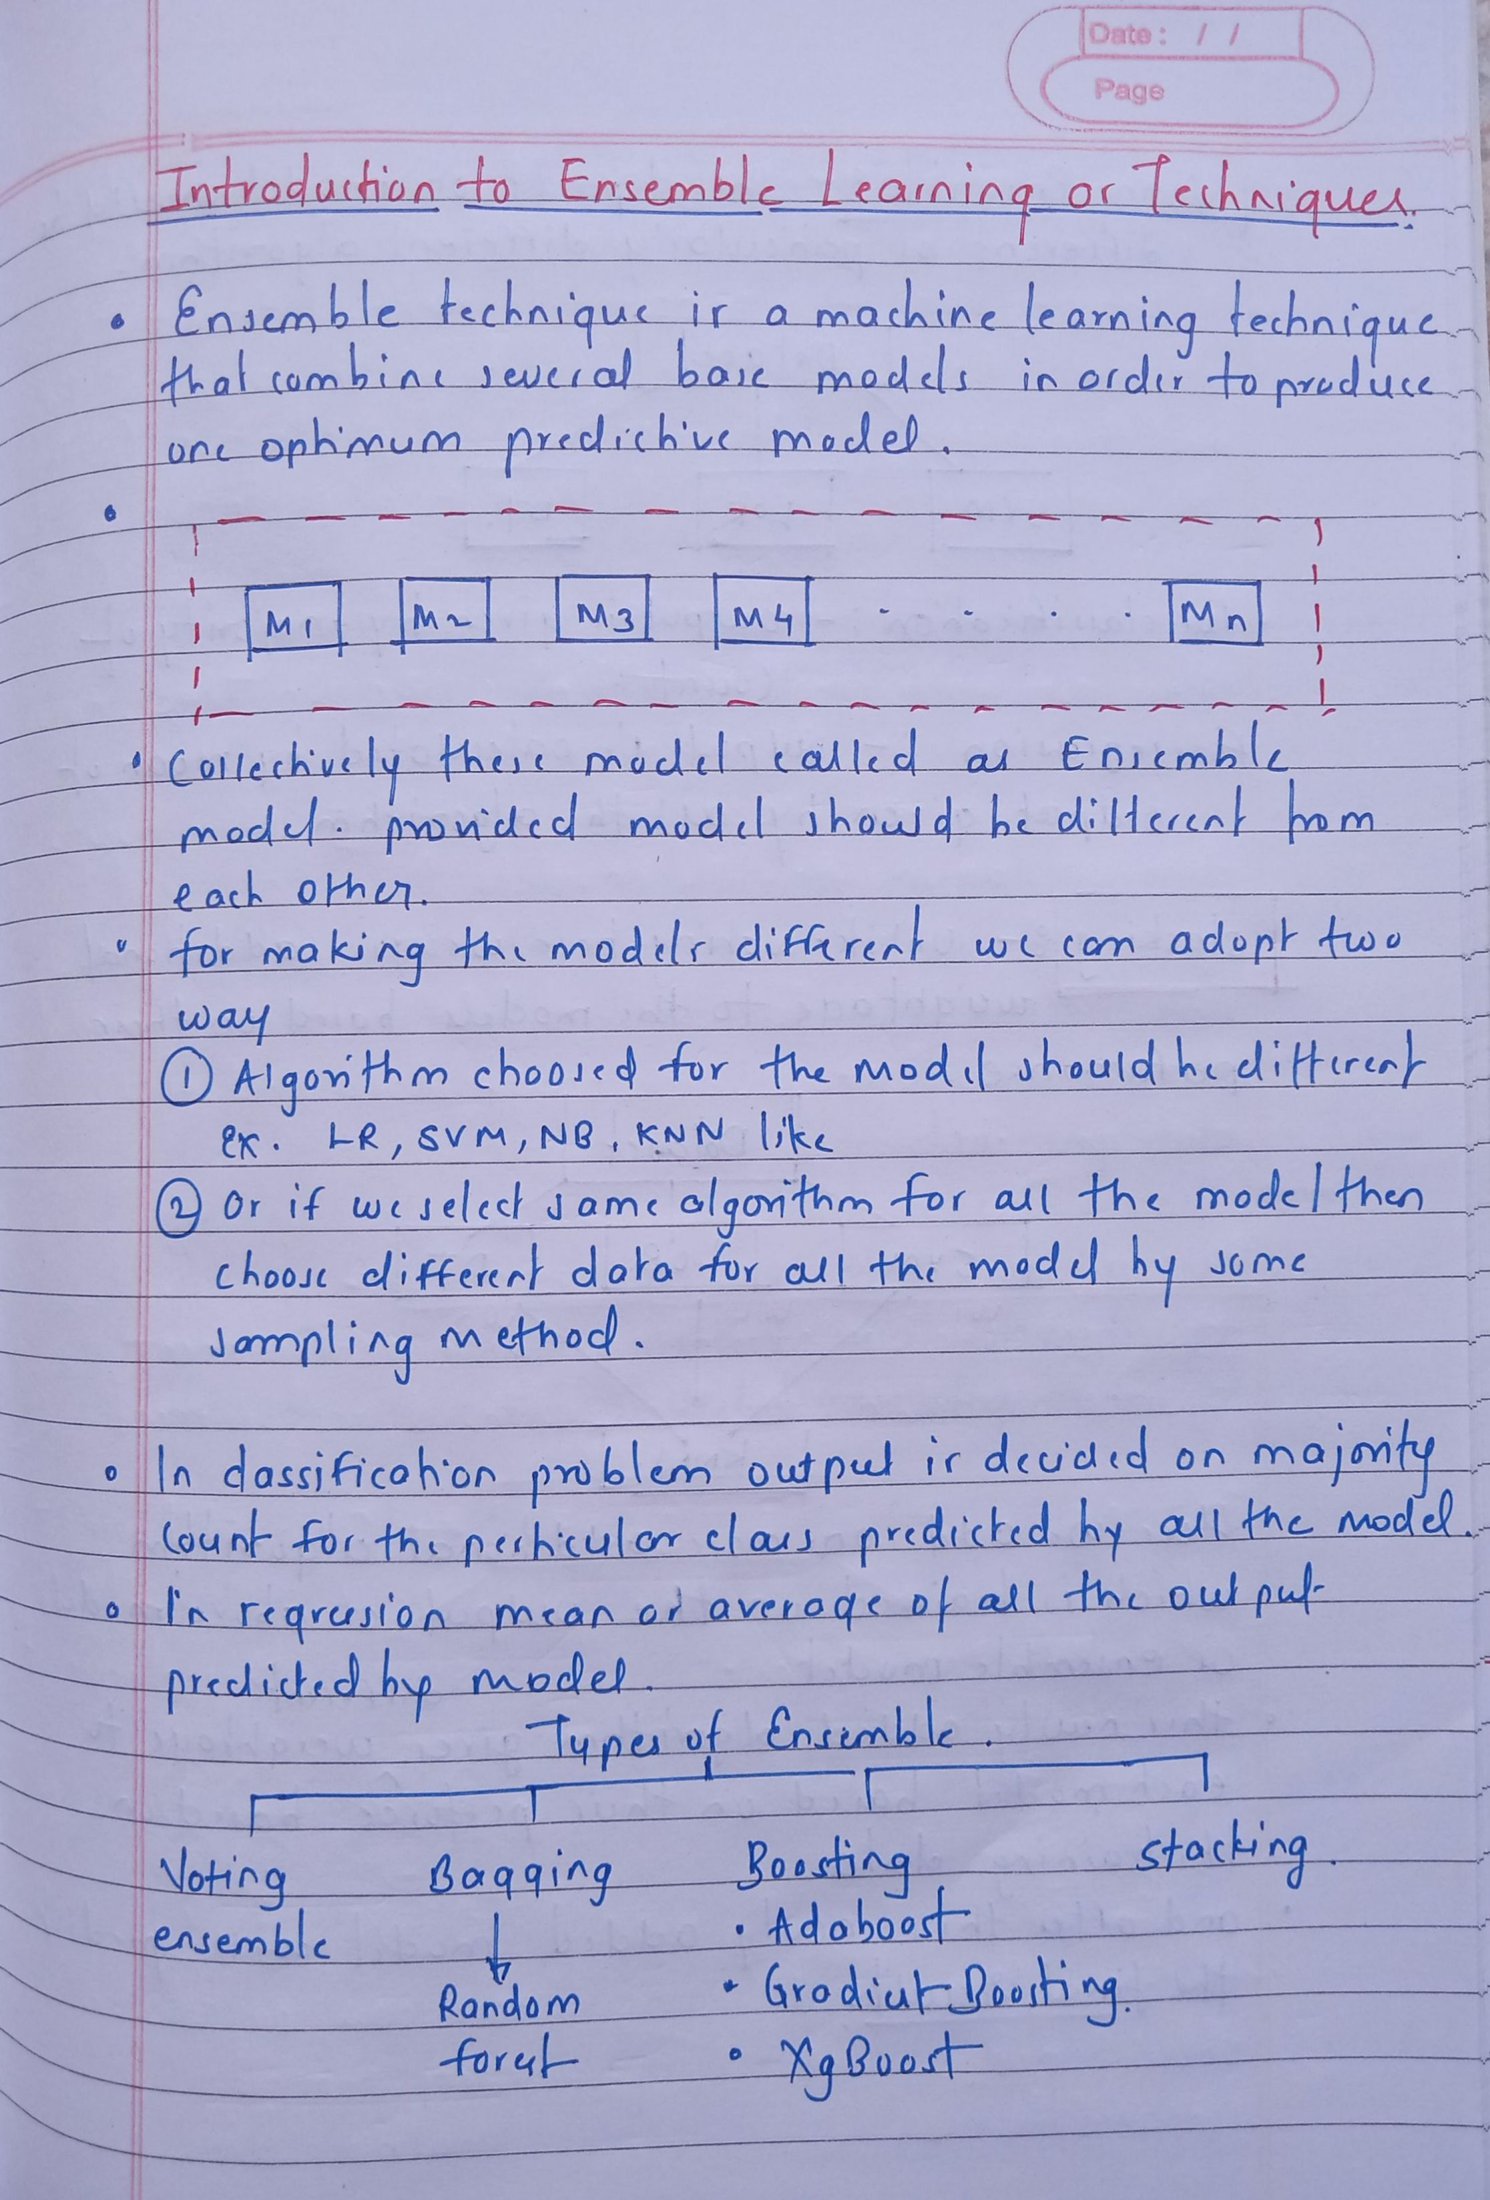 Date: / /
Page
Introduction to Ensemble Learning or Techniques.
• Ensemble technique is a machine learning technique
that combine several base models in order to produce
one optimum predictive model.
•
M1 M2 M3 M4 . . . . Mn
• Collectively these model called as Ensemble
model. provided model should be different from
each other.
• for making the models different we can adopt two
way
① Algorithm choosed for the model should be different
ex. LR, SVM, NB, KNN like
② Or if we select same algorithm for all the model then
choose different data for all the model by some
sampling method.
• In classification problem output is decided on majority
count for the perticular class predicted by all the model.
• In regression mean or average of all the output
predicted by model.
Types of Ensemble.
Voting Bagging Boosting stacking.
ensemble • Adaboost
Random • Gradiut Boosting.
forest • XgBoost